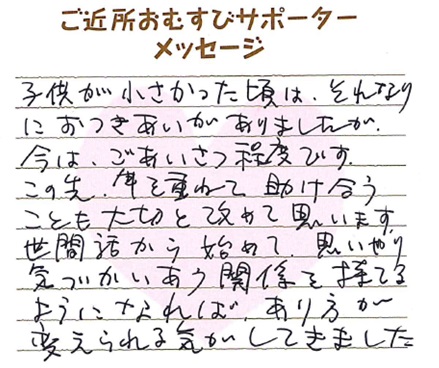 ご近所おむすびサポーター
メッセージ
子供が小さかった頃は、それなり
におつきあいがありましたが、
今は、ごあいさつ程度です。
この先、年を重ねて、助け合う
ことも大切と改めて思います。
世間話から始めて 思いやり
気づかいあう関係を持てる
ようになれば、あり方が
変えられる気がしてきました